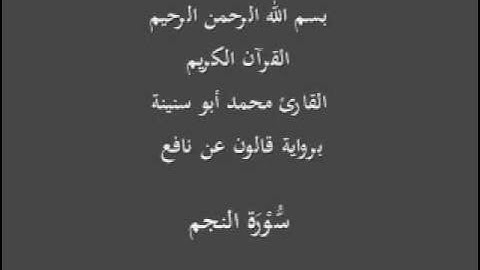 بسم الله الرحمن الرحيم
القرآن الكريم
القارئ محمد أبو سنينة
برواية قالون عن نافع
سُّوْرَة النجم